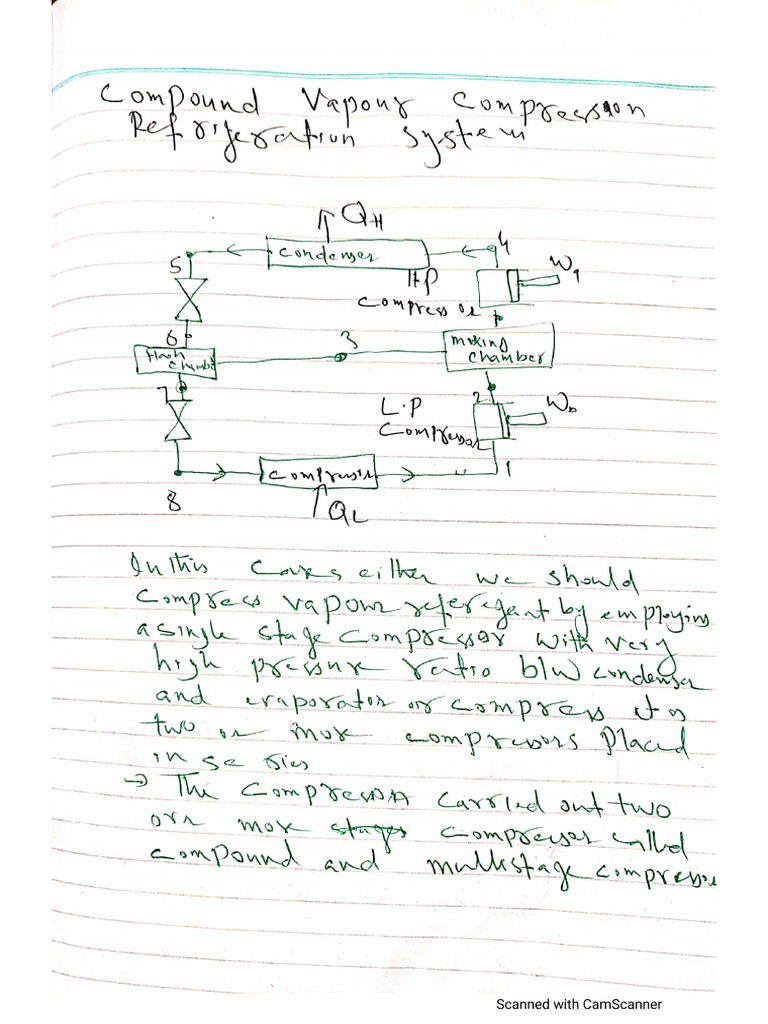 Compound Vapour Compression
Refrigeration System
QH
condenser
4
5
HP
Compressor
Wa
6
3
mixing
chamber
flash
chamber
7
L.P
Compressor
2
Wb
compressor
1
8
QL
In this cases either we should
compress vapour refregerant by employing
a single stage compressor with very
high pressure ratio b/w condenser
and evaporator or compress it
two or more compressors Placed
in series
→ The compression carried out two
or more stages compresser called
compound and multistage compressor
Scanned with CamScanner